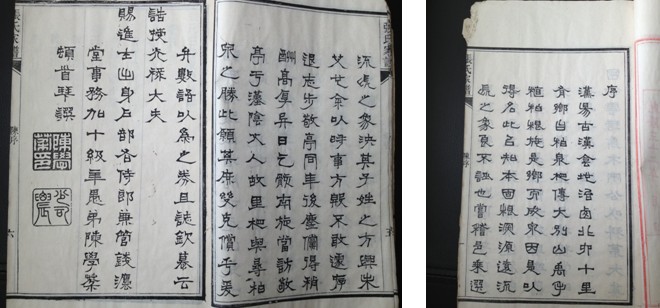 序
漢陽古漢會地治北十里
有鄉自柏泉柏傳大別山禹手
植柏根施是鄉而成泉因是以
得名此古柏本固根深源遠流
長之象良不誣也嘗稽邑乘選
流長之象決其子姓之方興未
艾余以時事方艱不敢遽
退志步敬亭同年後塵儻得稍
酬高厚異日之南旋當訪敬
亭于漢陰大人故里與尋柏
泉之勝此願其庶幾克償乎爰
弁數語以為之券且誌欽慕云
誥授光祿大夫
賜進士出身戶部右侍郎兼管錢灋
堂事務加十級年愚弟陳學棻
頓首拜譔
陳學棻印
陳序
六